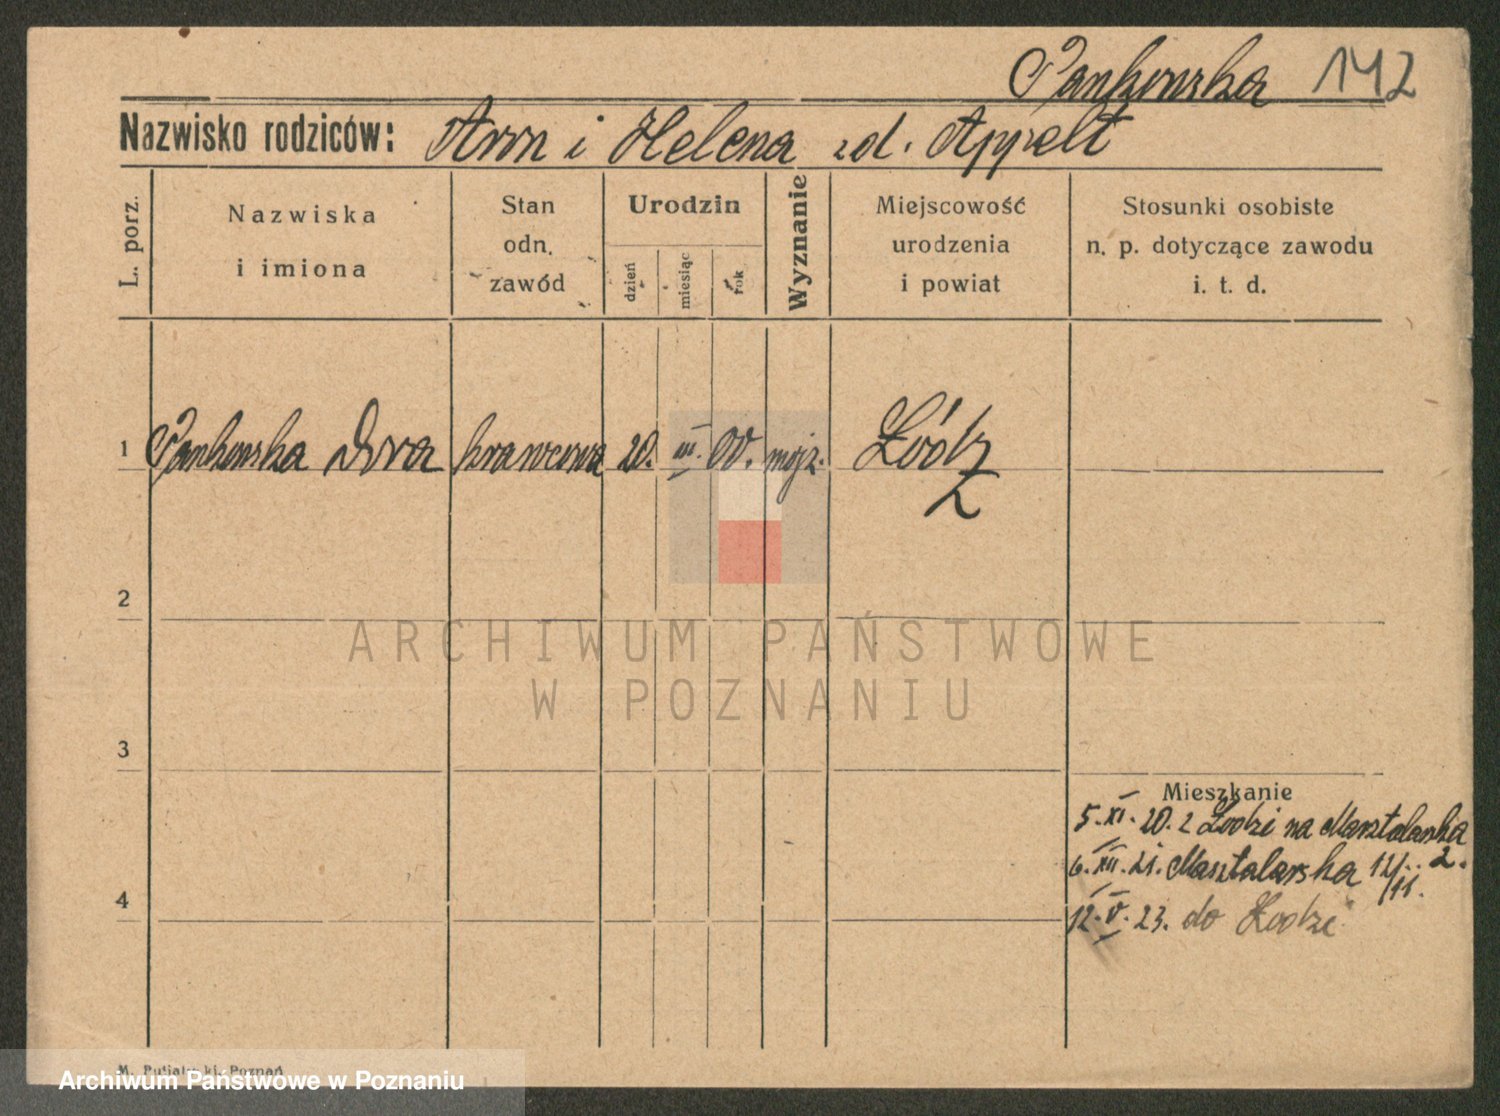 Pankowska 142
Nazwisko rodziców: Aron i Helena zd. Appelt
L. porz.
Nazwiska
i imiona
Stan
odn.
zawód
Urodzin
dzień
miesiąc
rok
Wyznanie
Miejscowość
urodzenia
i powiat
Stosunki osobiste
n. p. dotyczące zawodu
i. t. d.
1 Pankowska Dora krawcowa 20. III. 00. mojż. Łódź
2
ARCHIWUM PAŃSTWOWE
W POZNANIU
3
Mieszkanie
5. XI. 20. z Łodzi na Masztalarska
2.
6. XII. 21. Masztalarska
4
12. V. 23. do Łodzi
M. Putiatycki, Poznań
Archiwum Państwowe w Poznaniu